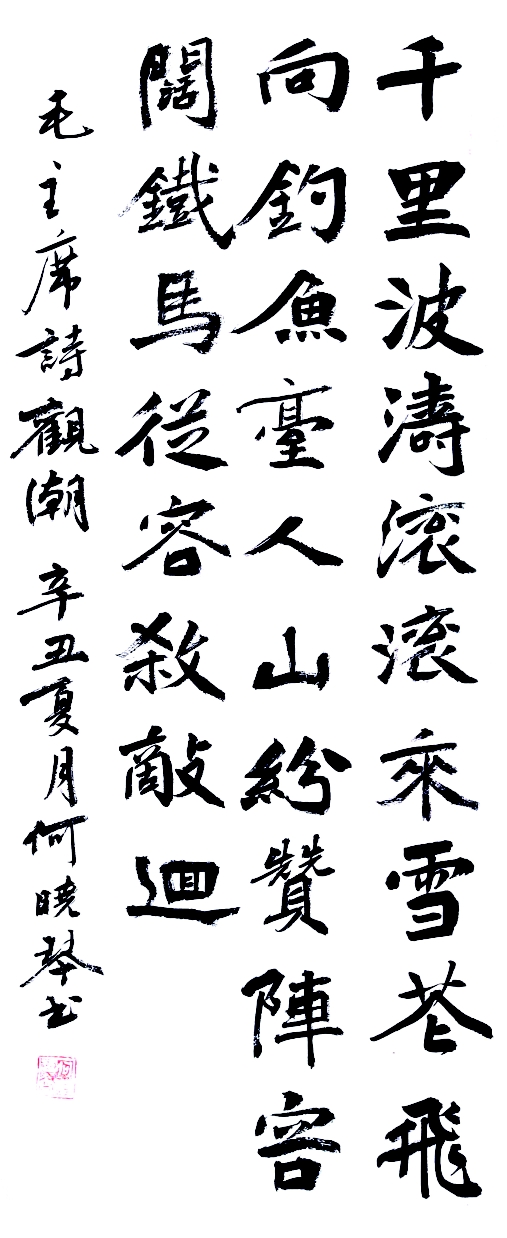 千里波濤滚滚來雪花飛
向釣魚臺人山紛贊陣容
闊鐵馬從容殺敵迴
毛主席詩觀潮 辛丑夏月何曉琴书